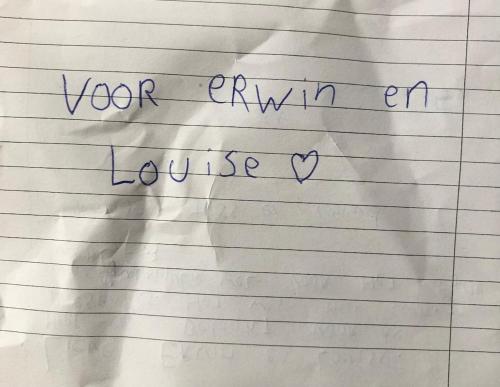 VOOR eRwin en
Louise ♡